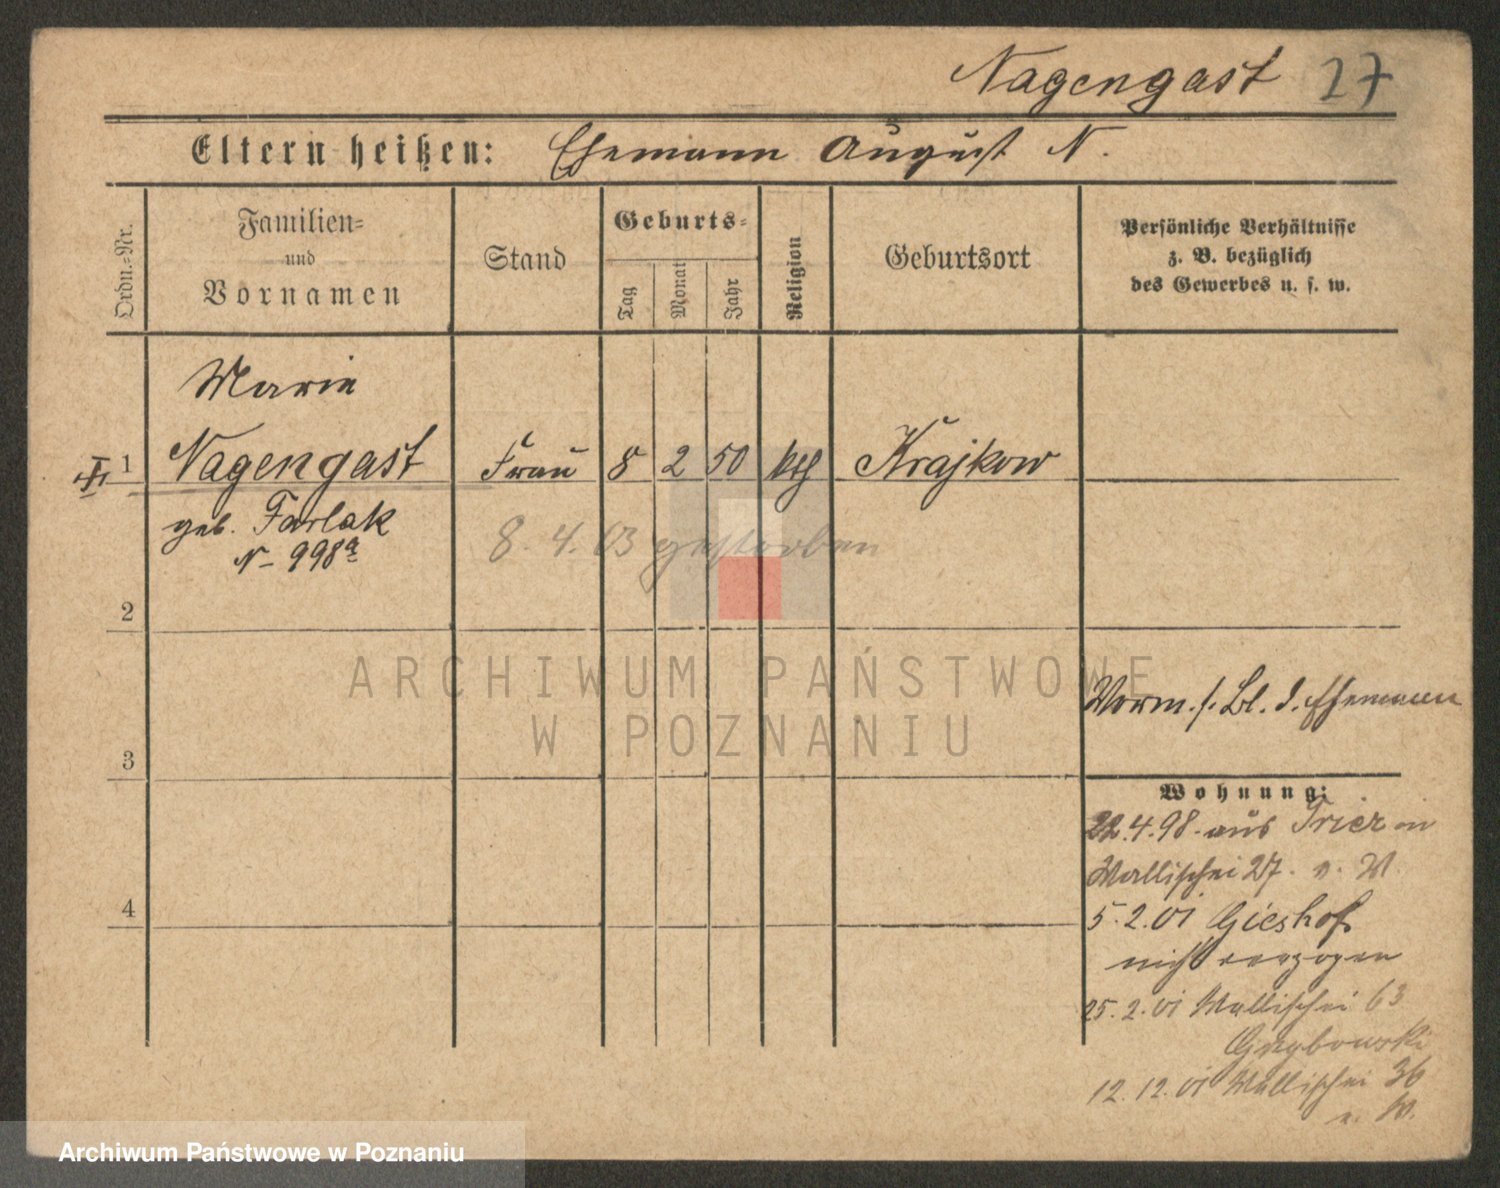 Nagengast 27
Eltern heißen: Ehemann August N.
Ordn.=Nr.
Familien=
und
Vornamen
Stand
Geburts=
Tag
Monat
Jahr
Religion
Geburtsort
Persönliche Verhältnisse
z. B. bezüglich
des Gewerbes u. s. w.
Marie
1 Nagengast Frau 8 2 50 kth Krajkow
geb. Farlak
N- 998a
8. 4. 03 gestorben
2
ARCHIWUM PAŃSTWOWE
W POZNANIU
Vorm. s. Bl. d. Ehemann
3
Wohnung:
22.4.98. aus Trier in
Wallischei 27. v. W
4
5.2.01 Gieshof
nicht verzogen
25.2.01 Wallischei 63
Grzybowski
12.12.01 Wallischei 36
v. W.
Archiwum Państwowe w Poznaniu